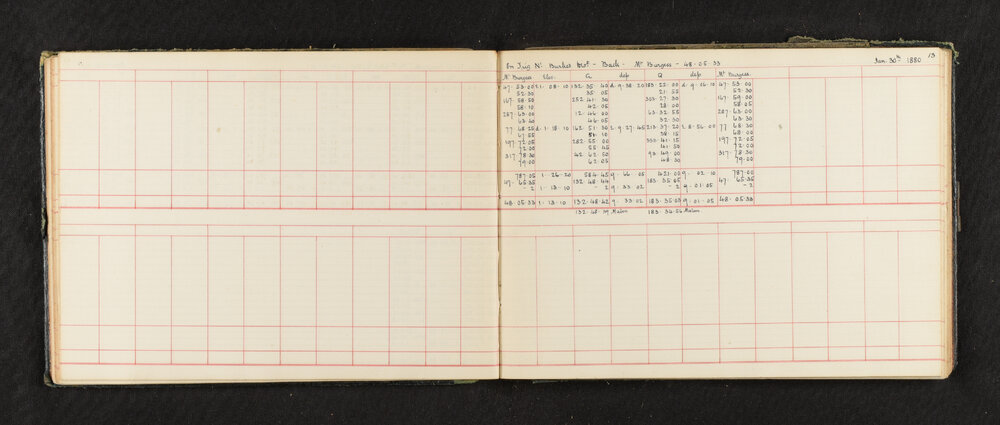 13
On Trig Nº Burket - Back - Mt Burgess - 48.05.33 Jan. 30th 1880
Mt Burgess Elev. G dep Q dep Mt Burgess
47.53.00 E 1.08.10 132.35.40 d.9.38.20 183.22.00 d.9.06.10 47.53.00
52.30 35.05 21.55 52.30
167.58.50 252.41.30 303.27.30 167.59.00
58.10 42.05 28.00 58.05
287.63.00 12.46.00 63.32.55 287.63.00
63.40 46.05 32.30 63.30
77.68.25 d.1.18.10 162.51.30 E.9.27.45 213.37.20 E.8.56.00 77.68.30
67.55 51.10 38.15 68.00
197.72.05 282.55.00 333.41.15 197.72.05
72.00 55.45 41.50 72.00
317.78.30 42.62.50 93.49.00 317.78.30
79.00 62.05 48.30 79.00
787.05 1.26.20 584.45 9.66.05 421.00 9.02.10 787.00
47.65.35 132.48.44 183.35.05 47.65.35
-2 1.13.10 -2 9.33.02 -2 9.01.05 -2
48.05.33 1.13.10 132.48.42 9.33.02 183.35.03 9.01.05 48.05.33
132.48.19 Mean 183.34.56 Mean